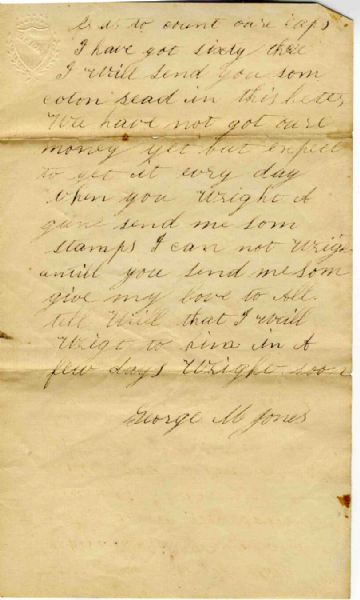 to count oure caps
I have got sixty three
I will send you som
coton sead in this letter
We have not got oure
money yet but expect
to get it evry day
when you Wright A
gan send me som
stamps I can not wrigt
untill you send me som
give my love to All
tell Will that I will
Wrigt to in A
few days Wright soon
George M Jones